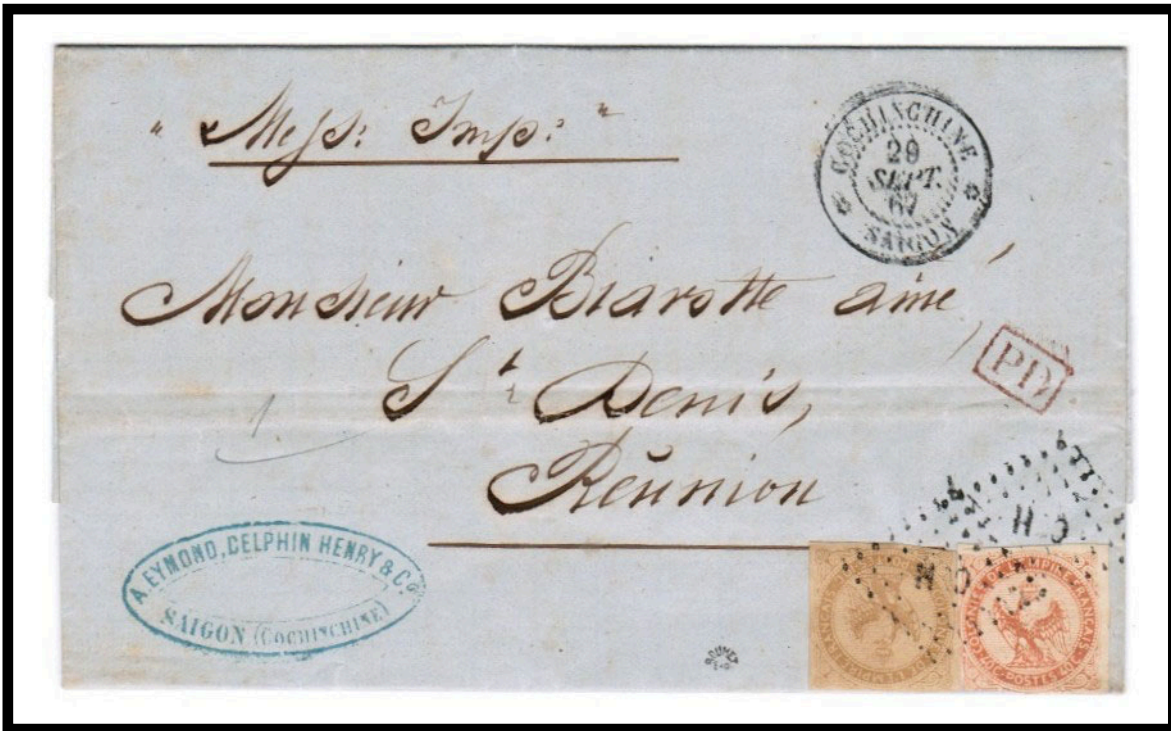 " Mess: Imp: "
COCHINCHINE
29
SEPT.
67
SAIGON
Monsieur Biarotte ainé,
PD
St Denis,
Réunion
A. EYMOND, DELPHIN HENRY & Co.
SAIGON (COCHINCHINE)
COLONIES DE L'EMPIRE FRANÇAIS
POSTES